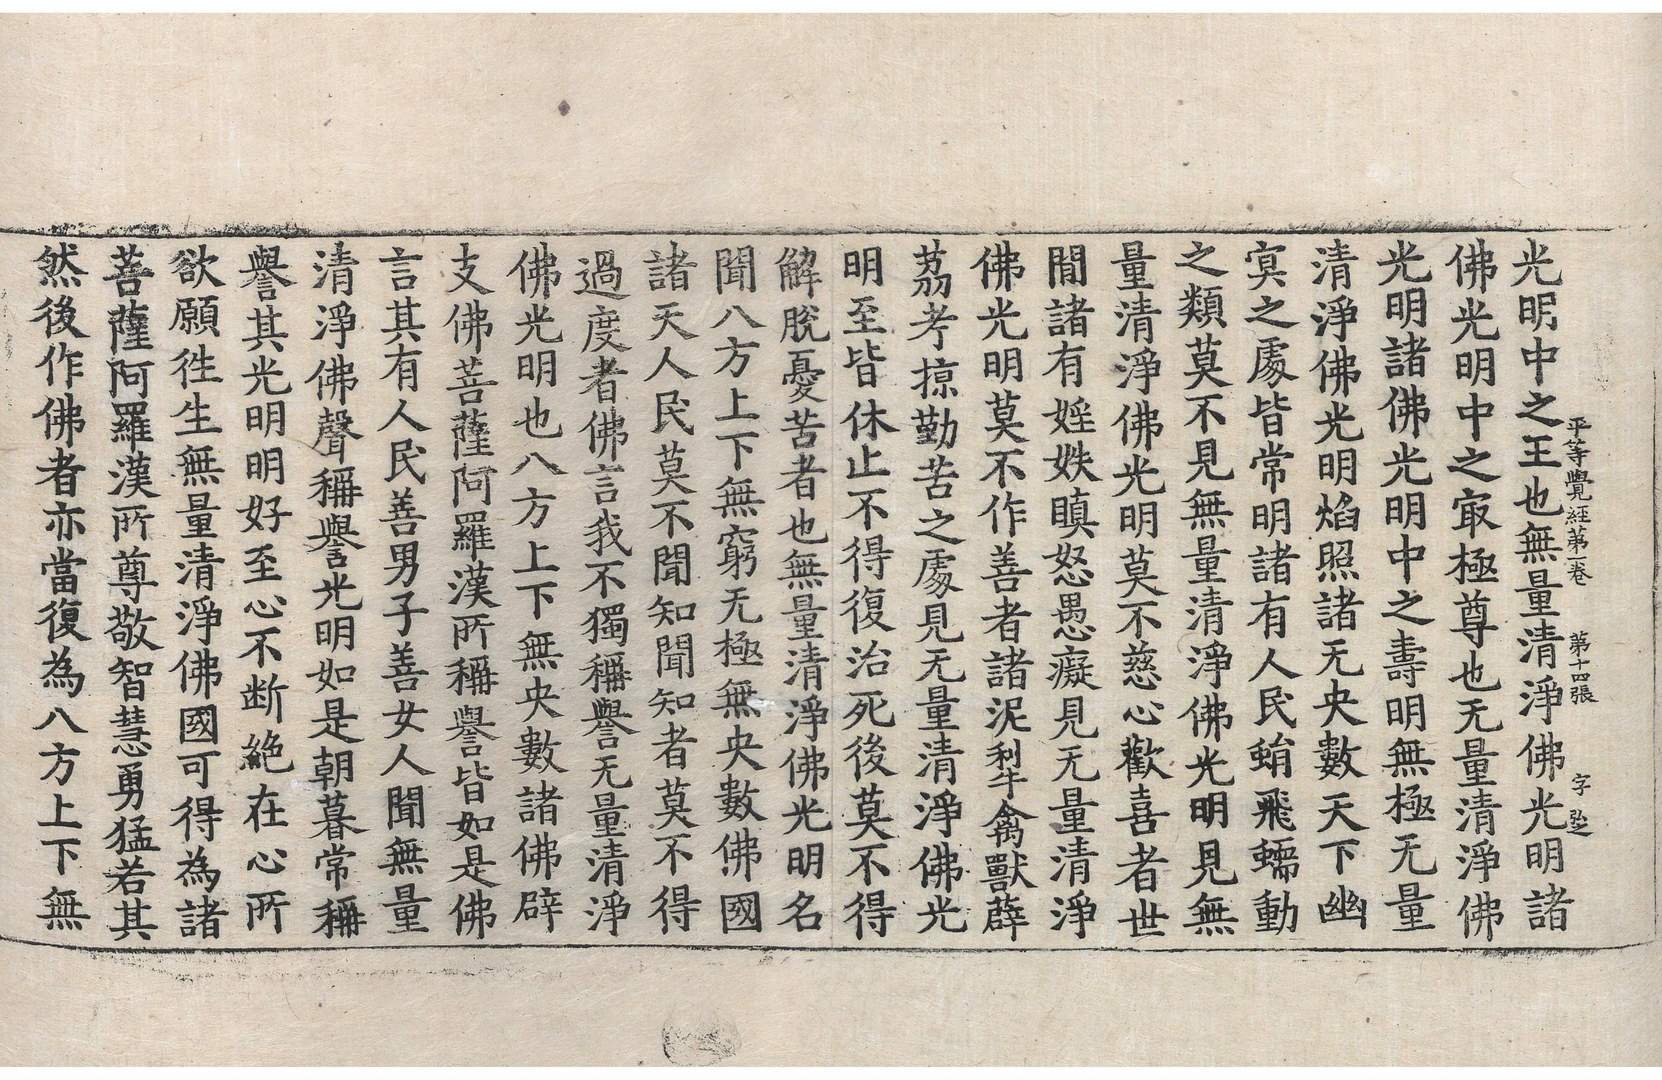 平等覺經第一卷　第十四張　字號
光明中之王也無量清淨佛光明諸
佛光明中之㝡極尊也无量清淨佛
光明諸佛光明中之壽明無極无量
清淨佛光明焰照諸无央數天下幽
㝠之處皆常明諸有人民蜎飛蠕動
之類莫不見無量清淨佛光明見無
量清淨佛光明莫不慈心歡喜者世
閒諸有婬妷瞋怒愚癡見无量清淨
佛光明莫不作善者諸泥犁禽獸薜
荔考掠勤苦之處見无量清淨佛光
明至皆休止不得復治死後莫不得
解脫憂苦者也無量清淨佛光明名
聞八方上下無窮无極無央數佛國
諸天人民莫不聞知聞知者莫不得
過度者佛言我不獨稱譽无量清淨
佛光明也八方上下無央數諸佛辟
支佛菩薩阿羅漢所稱譽皆如是佛
言其有人民善男子善女人聞無量
清淨佛聲稱譽光明如是朝暮常稱
譽其光明明好至心不斷絕在心所
欲願徃生無量清淨佛國可得為諸
菩薩阿羅漢所尊敬智慧勇猛若其
然後作佛者亦當復為八方上下無